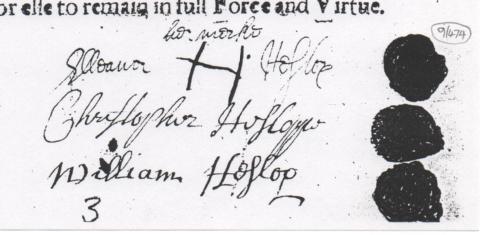 or else to remain in full Force and Virtue.
9/474
her marke
Elleanor H Heslop
Christopher Hesloppe
William Heslop
3